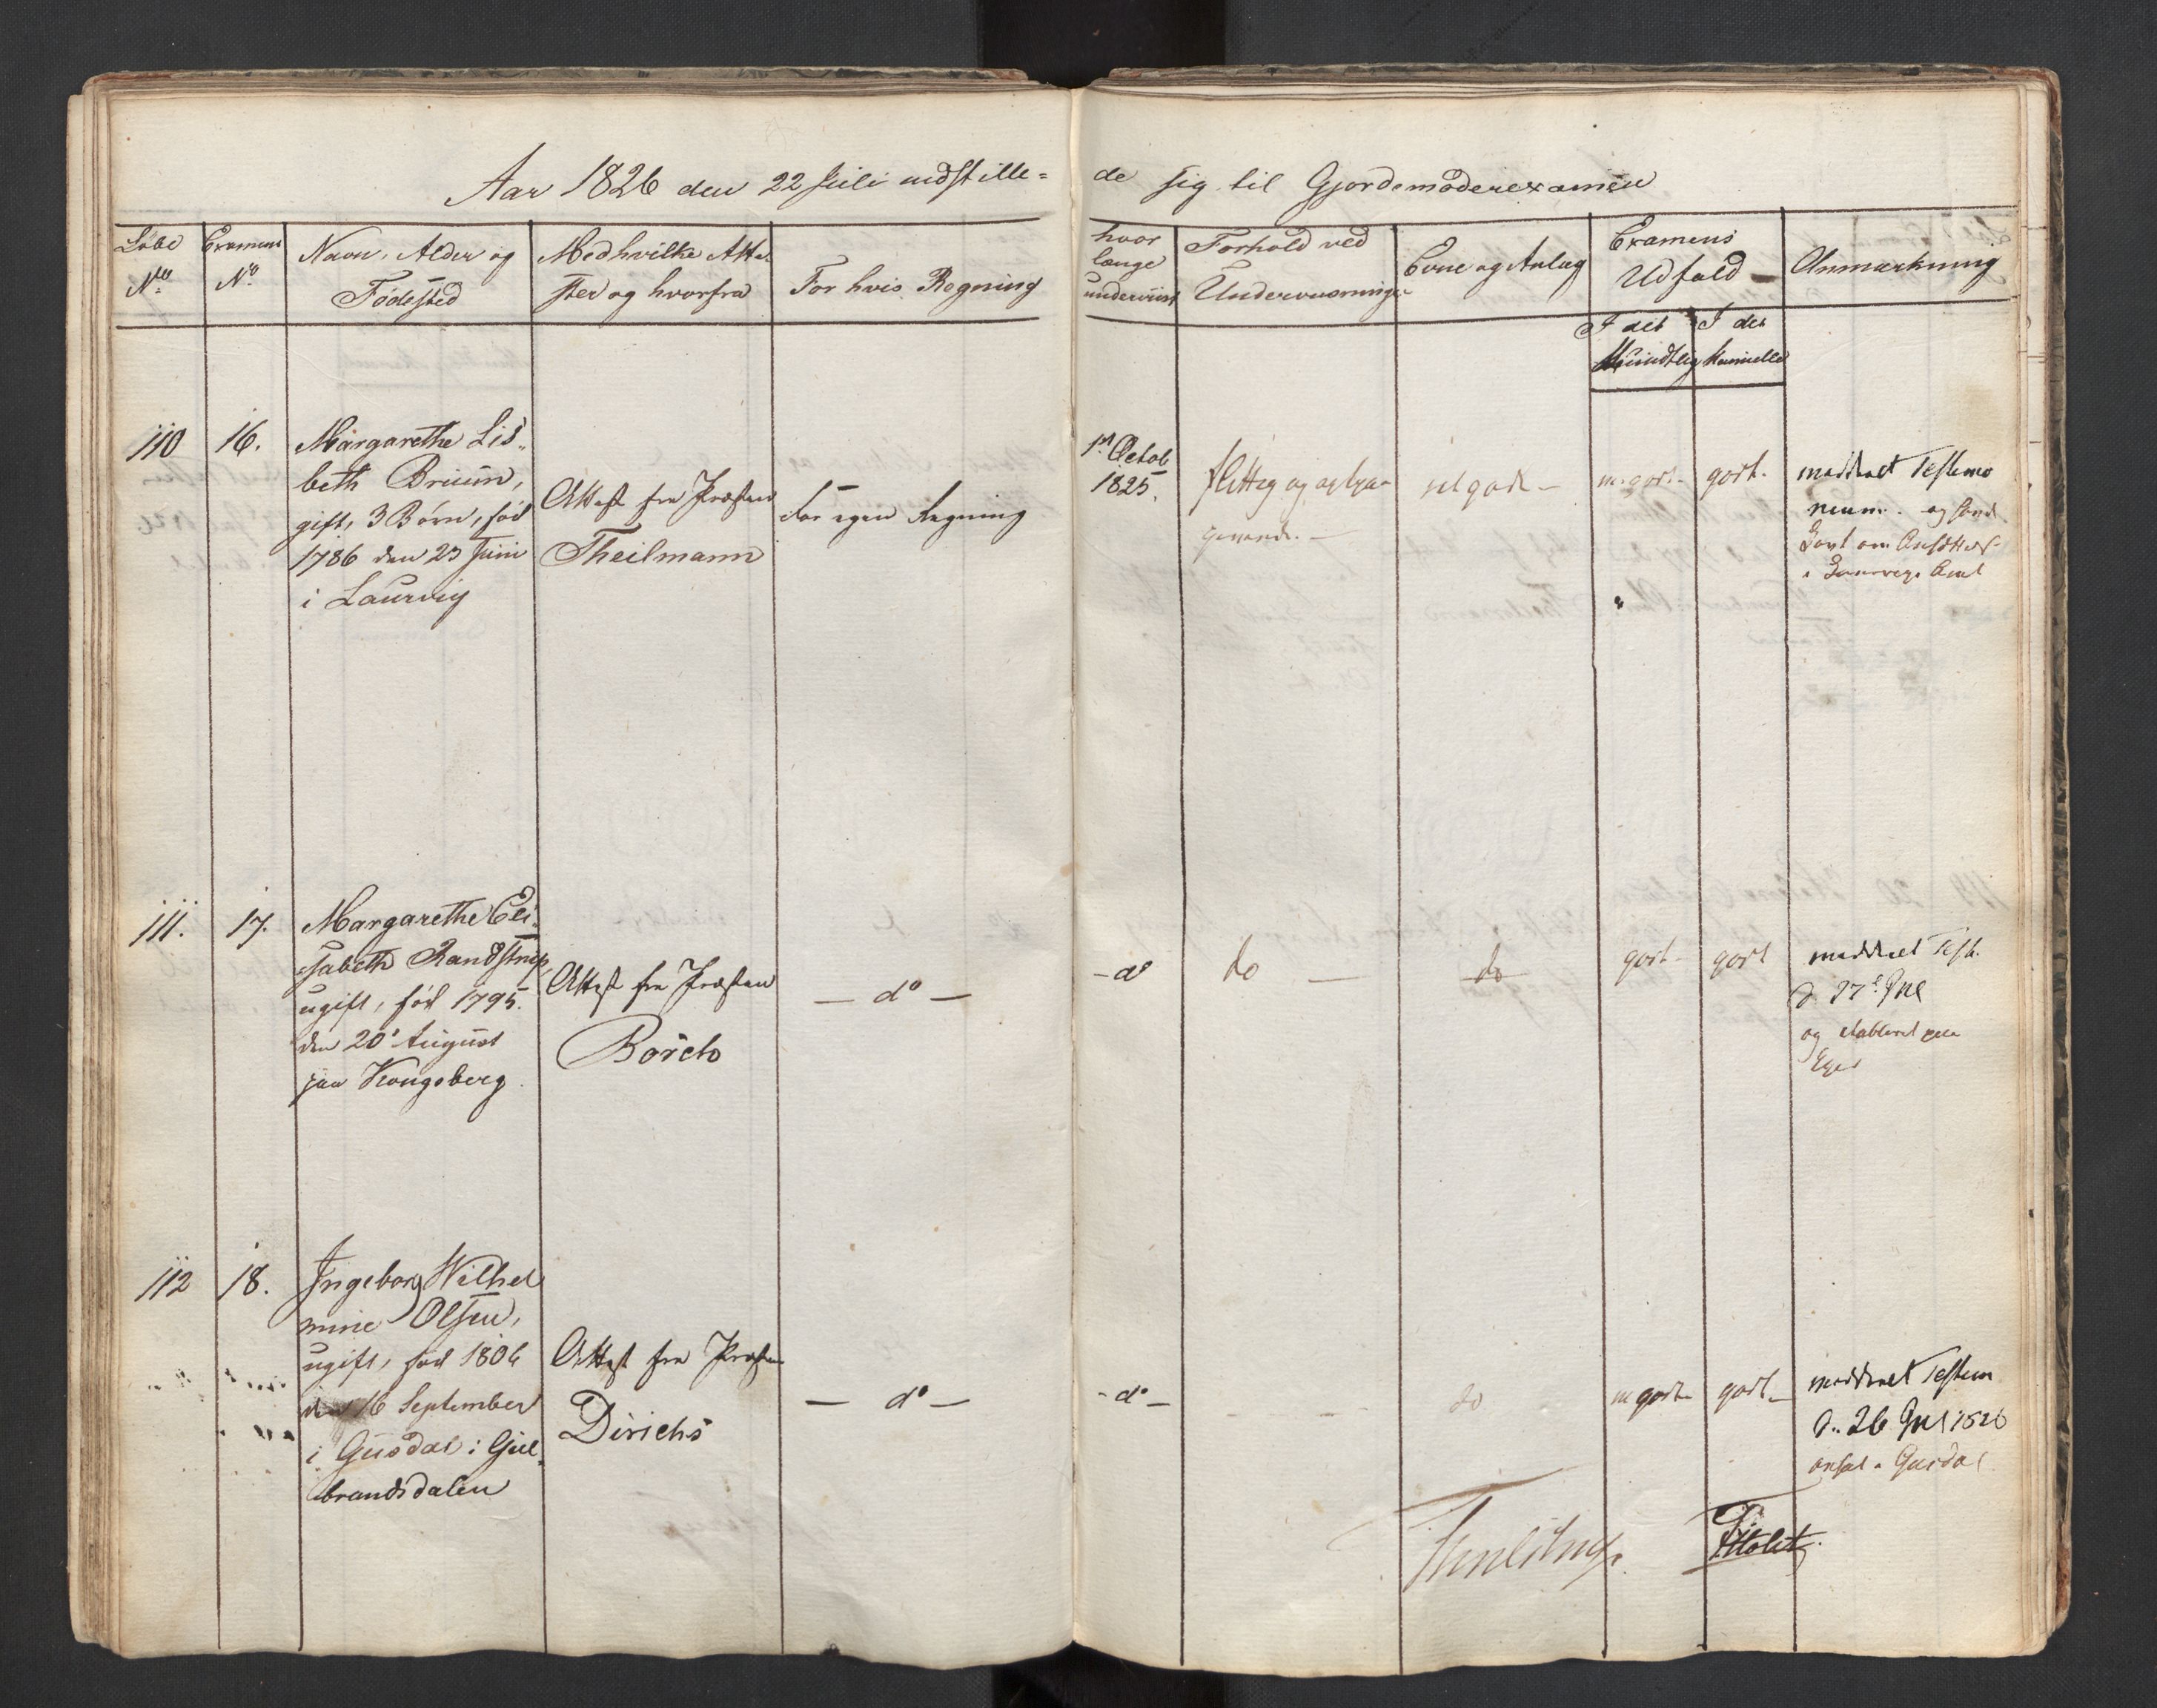 Aar 1826 den 22 Juli indstille-
de sig til Gjordemoderexamen
Løbe
No
Examens
No
Navn, Alder og
Fødested
Med hvilke Atte
ster og hvorfra
For hvis Regning
hvor
længe
underviist
Forhold ved
Underviisningen
Evne og Anlæg
Examens
Udfald
I det
Mundtlig
I det
Manuelle
Anmærkning
110
16.
Margarethe Lis„
beth Bruun,
gift, 3 Børn, fød
1786 den 23 Juni
i Laurvig
Attest fra Præsten
Theilmann
for egen Regning
1st Octob
1825.
flittig og
godt.
meddeelt Testimo
nium. og
111.
17.
Margarethe Eli„
sabeth Randstrup,
ugift, fød 1795.
den 20' August
paa Kongsberg.
Attest fra Præsten
Borch
— do —
- do
do —
do
godt
godt
meddeelt Test.
og etableret paa
Eger
112
18.
Ingeborg Wilhel
mine Olsen,
ugift, fød 1806
den 16 September
i Gusdal i Gul„
brandsdalen
Attest fra Præsten
Dirichs
— do —
- do —
do
m godt
godt
meddeelt Testim
d. 26 Jul 1826
ansat i Gusdal